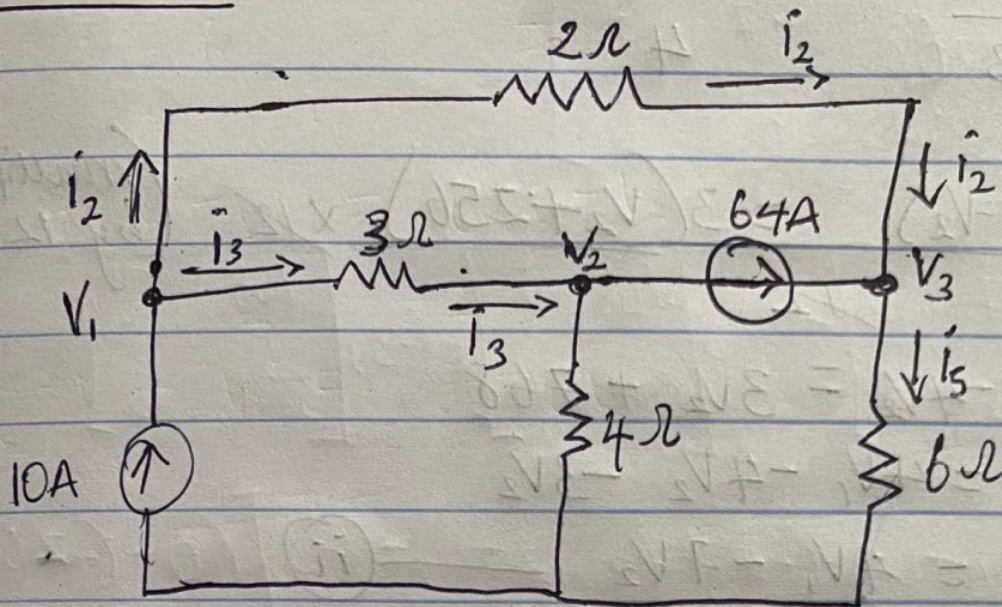 2Ω
i2
i2
i2
i3
3Ω
V2
64A
V3
V1
i3
i5
4Ω
10A
6Ω